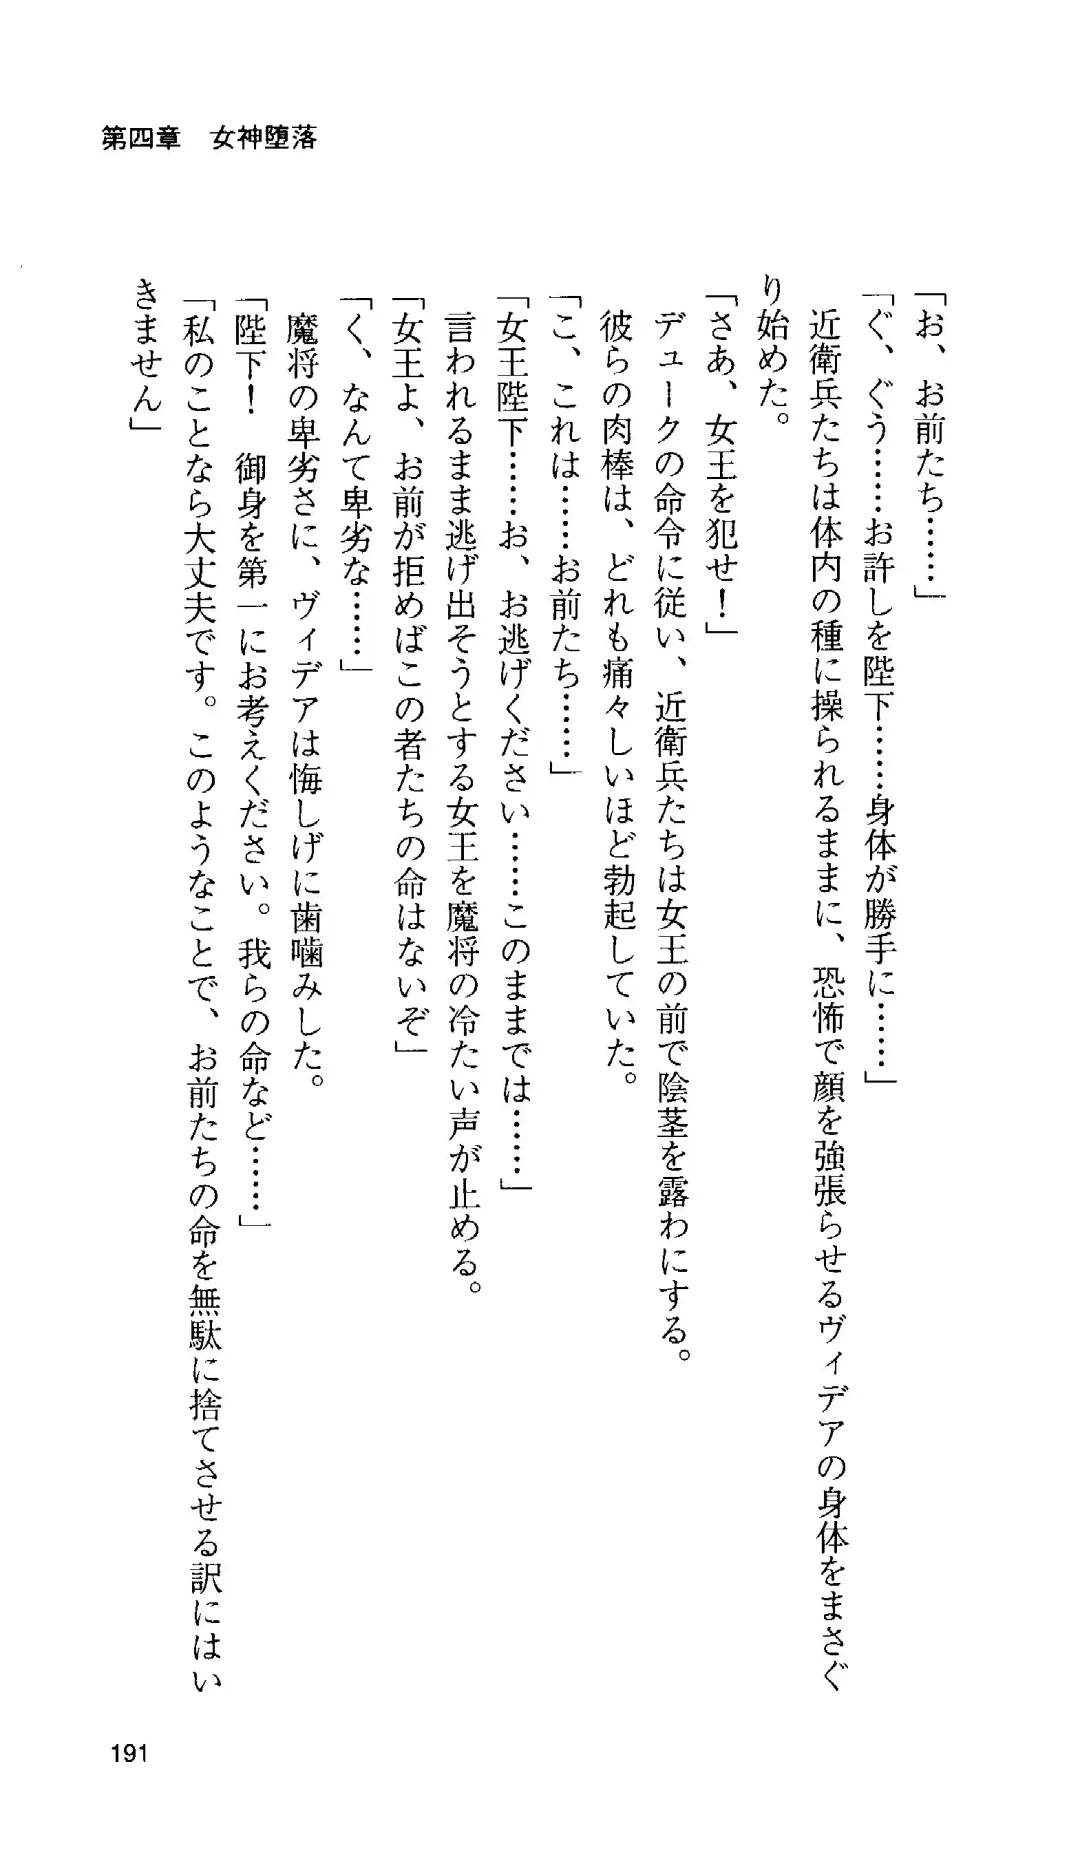 第四章　女神堕落
「お、お前たち……」
「ぐ、ぐう……お許しを陛下……身体が勝手に……」
　近衛兵たちは体内の種に操られるままに、恐怖で顔を強張らせるヴィデアの身体をまさぐ
り始めた。
「さあ、女王を犯せ！」
　デュークの命令に従い、近衛兵たちは女王の前で陰茎を露わにする。
　彼らの肉棒は、どれも痛々しいほど勃起していた。
「こ、これは……お前たち……」
「女王陛下……お、お逃げください……このままでは……」
　言われるまま逃げ出そうとする女王を魔将の冷たい声が止める。
「女王よ、お前が拒めばこの者たちの命はないぞ」
「く、なんて卑劣な……」
　魔将の卑劣さに、ヴィデアは悔しげに歯噛みした。
「陛下！　御身を第一にお考えください。我らの命など……」
「私のことなら大丈夫です。このようなことで、お前たちの命を無駄に捨てさせる訳にはい
きません」
191